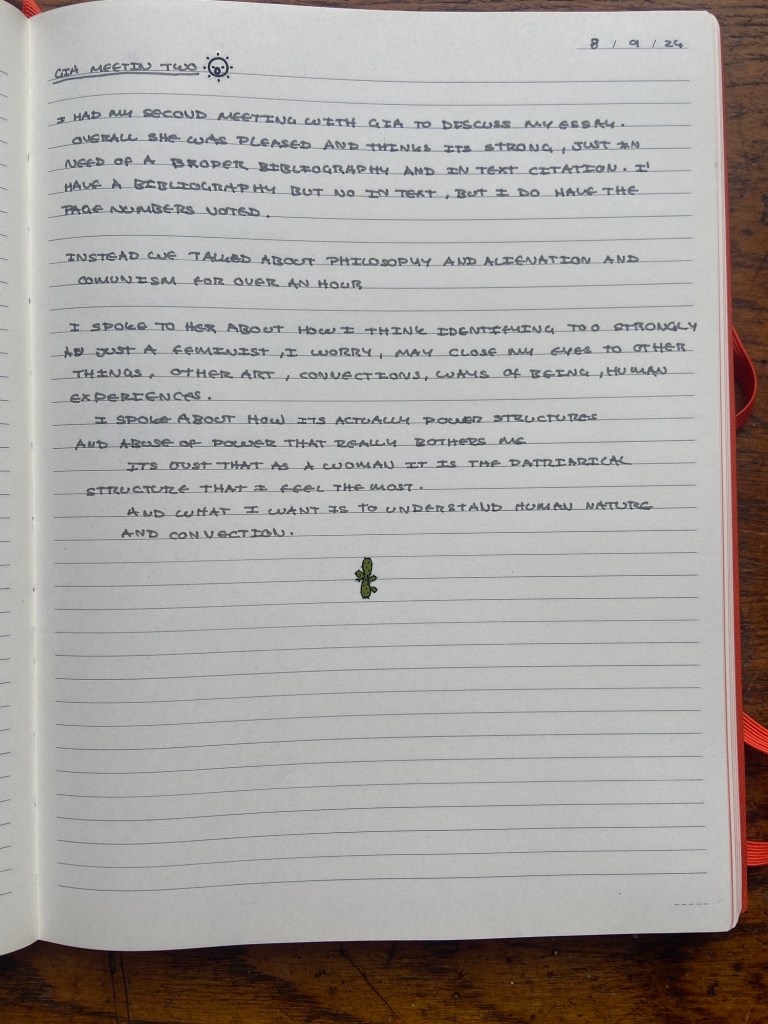 8 / 9 / 24
GIA MEETIN TWO
I HAD MY SECOND MEETING WITH GIA TO DISCUSS MY ESSAY.
OVERALL SHE WAS PLEASED AND THINKS ITS STRONG, JUST IN
NEED OF A PROPER BIBLIOGRAPHY AND IN TEXT CITATION. I'
HAVE A BIBLIOGRAPHY BUT NO IN TEXT, BUT I DO HAVE THE
PAGE NUMBERS NOTED.
INSTEAD WE TALKED ABOUT PHILOSOPHY AND ALIENATION AND
COMUNISM FOR OVER AN HOUR
I SPOKE TO HER ABOUT HOW I THINK IDENTIFYING TOO STRONGLY
AS JUST A FEMINIST, I WORRY, MAY CLOSE MY EYES TO OTHER
THINGS, OTHER ART, CONVECTIONS, WAYS OF BEING, HUMAN
EXPERIENCES.
I SPOKE ABOUT HOW ITS ACTUALLY POWER STRUCTURES
AND ABUSE OF POWER THAT REALLY BOTHERS ME
ITS JUST THAT AS A WOMAN IT IS THE PATRIARICAL
STRUCTURE THAT I FEEL THE MOST.
AND WHAT I WANT IS TO UNDERSTAND HUMAN NATURE
AND CONVECTION.